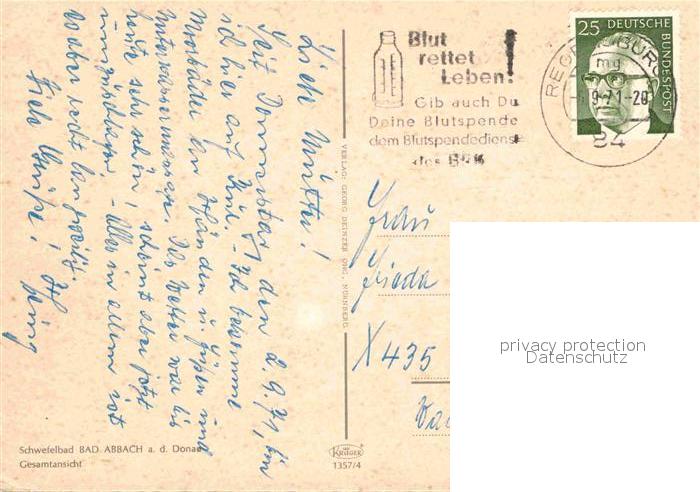 Liebe Mutter!
Seit Donnerstag den 2.9.71, bin
ich hier auf Kur. - Ich bekomme
Moorbäder an Händen u. Füßen und
Unterwassermassage. Das Wetter war bis
heute sehr schön, scheint aber jetzt
umzuschlagen. - Alles in allem ist
recht langweilig.
Viele Grüße!
Schwefelbad BAD ABBACH a. d. Donau
Gesamtansicht
VERLAG: GEORG DEINZER OHG., NÜRNBERG
KRÜGER
1357/4
Blut
rettet
Leben!
Gib auch Du
Deine Blutspende
dem Blutspendedienst
des BRK
25 DEUTSCHE
BUNDESPOST
REGENSBURG
mg
9.71-20
84
Frau
Frieda
X 435
privacy protection
Datenschutz